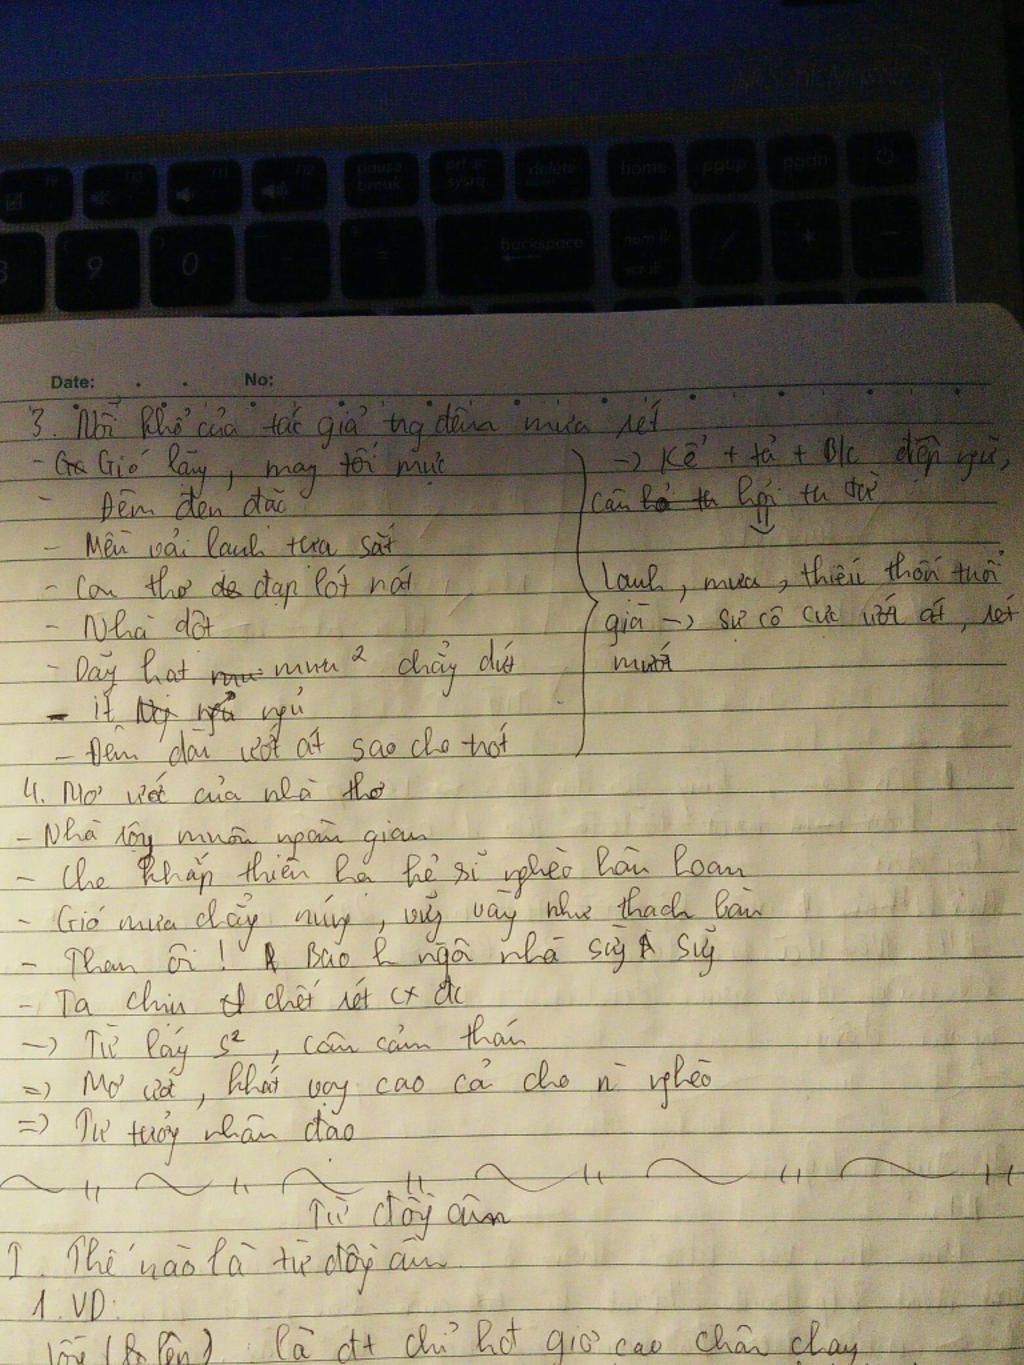 F9 F10 F11 F12 pause break prt sc sysrq delete home pgup pgdn
8 9 0 - = backspace num lk scr lk / * -
Date: No:
3. Nỗi khổ của tác giả trg đêm mưa rét
- Gió lặng, mây tối mực
- Đêm đen đặc
- Mền vải lạnh tựa sắt
- Con thơ đạp lót nát
- Nhà dột
- Dày hạt mưa² chẳng dứt
- ít ngủ
- Đêm dài ướt át sao cho trót
-> Kể + tả + B/c điệp ngữ,
câu hỏi tu từ
Lạnh, mưa, thiếu thốn tuổi
già -> sự cô cực ướt át, rét
mướt
4. Mơ ước của nhà thơ
- Nhà rộng muôn ngàn gian
- Che khắp thiên hạ kẻ sĩ nghèo hân hoan
- Gió mưa chẳng núng, vững vàng như thạch bàn
- Than ôi! Bao h ngôi nhà sừng sững
- Ta chịu chết rét cx đc
-> Từ láy s², câu cảm thán
=> Mơ ước, khát vọng cao cả cho n` nghèo
=> Tư tưởng nhân đạo
Từ đồng âm
I. Thế nào là từ đồng âm
1. VD:
lồng (lên) là đt chỉ hđ giơ cao chân chạy